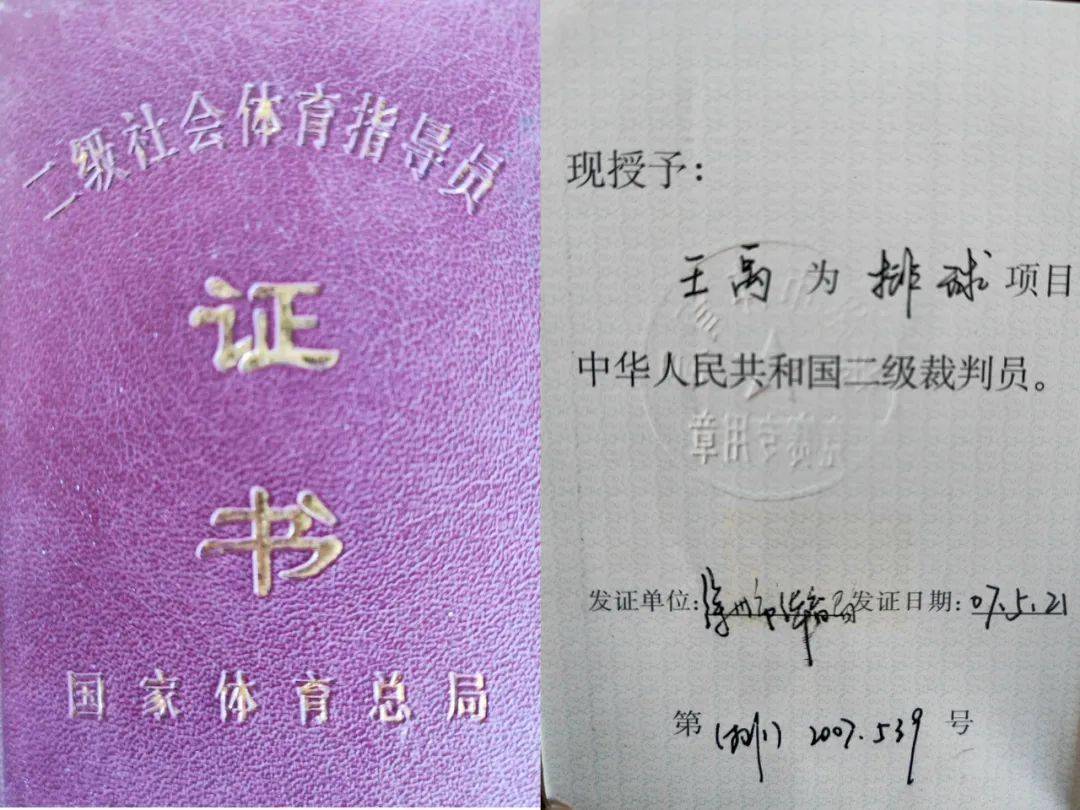 二级社会体育指导员
证
书
国家体育总局
现授予：
王禹为排球项目
中华人民共和国二级裁判员。
章用专
发证单位：州市体育局发证日期：07.5.21
第 2007.539 号